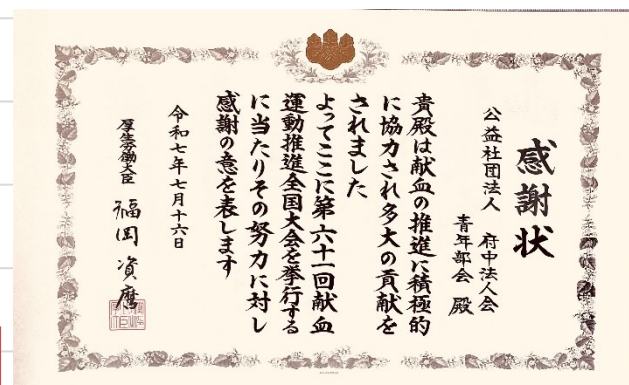 感謝状
公益社団法人 府中法人会
青年部会 殿
貴殿は献血の推進に積極的
に協力され多大の貢献を
されました
よってここに第六十一回献血
運動推進全国大会を挙行する
に当たりその努力に対し
感謝の意を表します
令和七年七月十六日
厚生労働大臣 福岡資麿